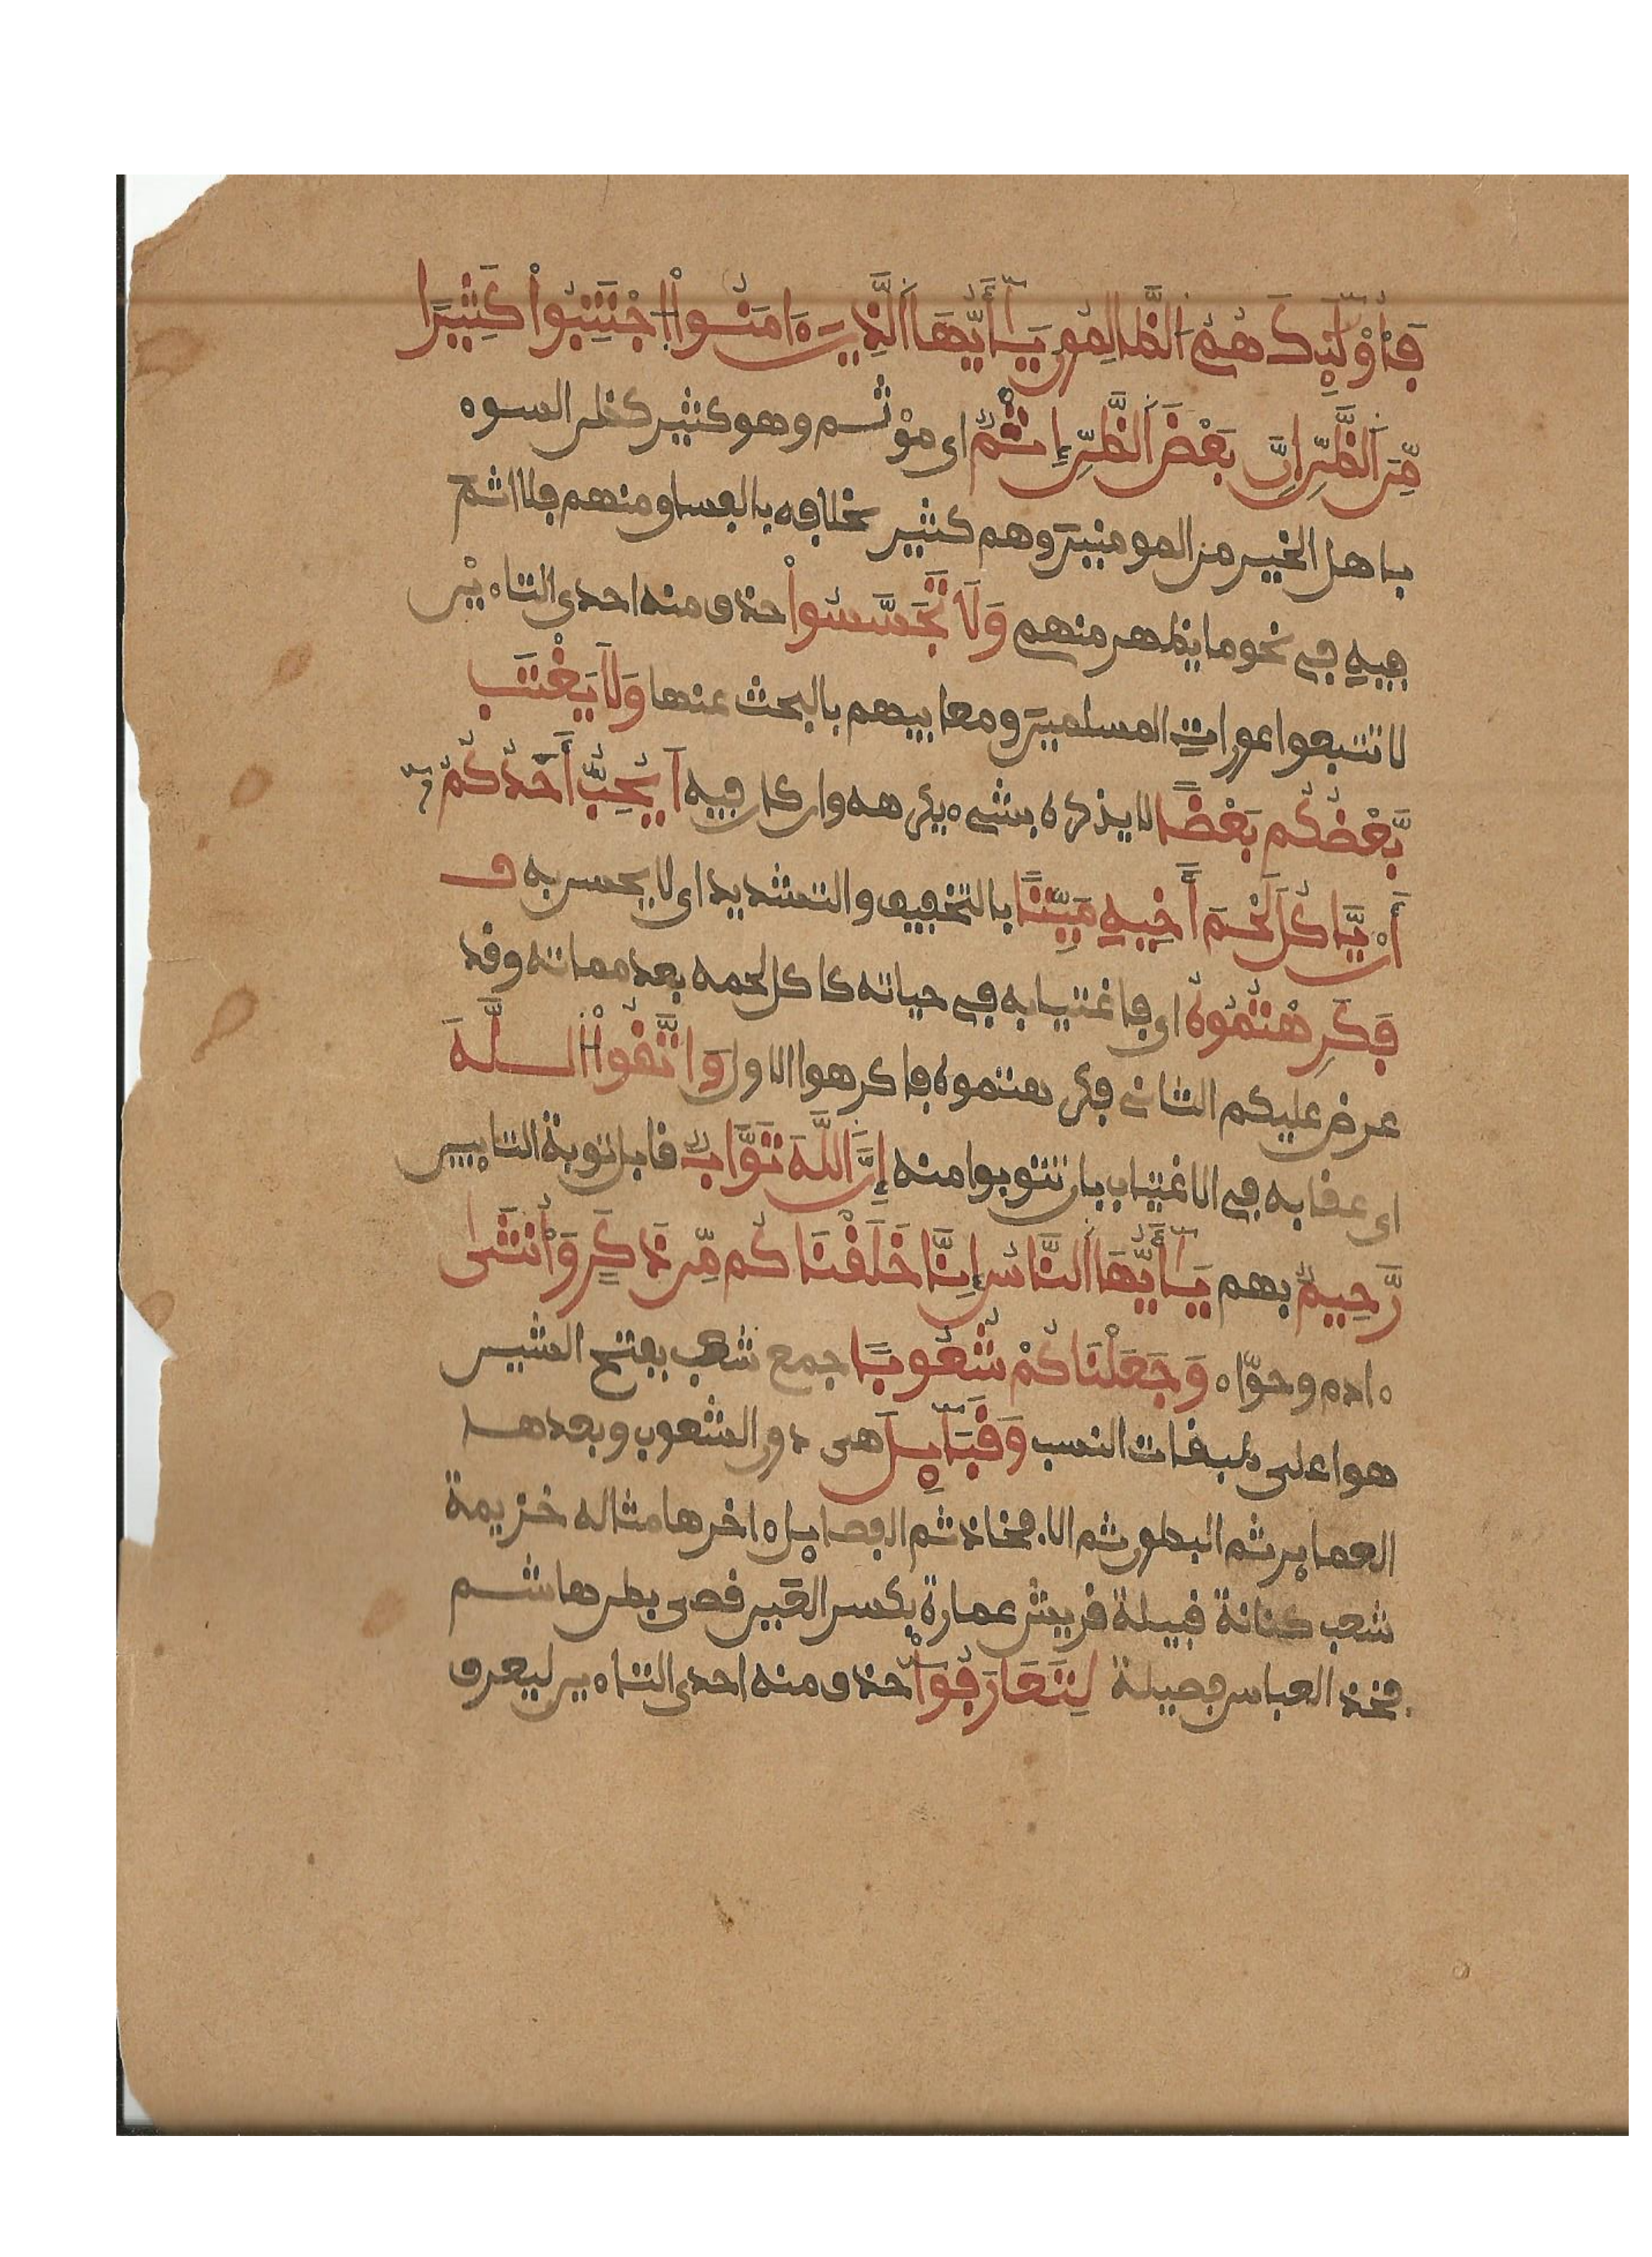 فَأُوْلَٰٓئِكَ هُمُ اُلظَّٰلِمُونَ يَٰٓأَيُّهَا اَلَّذِينَ ءَامَنُواْ اُجْتَنِبُواْ كَثِيرًا
مِّنَ اَلظَّنِّ إِنَّ بَعْضَ اَلظَّنِّ إِثْمٌ اى مؤثم وهو كثير كظن السوء
باهل الخير من المومنين وهم كثير بخلافه بالفساق منهم فلا اثم
فيه في نحو ما يظهر منهم وَلَا تَجَسَّسُواْ حذف منه احدى التاءين
لا تتبعوا عورات المسلمين ومعايبهم بالبحث عنها وَلَا يَغْتَب
بَّعْضُكُم بَعْضًا لا يذكره بشىء يكرهه وان كان فيه اَيُحِبُّ أَحَدُكُمُۥٓ
أَنْ يَّاكُلَ لَحْمَ أَخِيهِ مَيِّتًا بالتخفيف والتشديد اى لا يحسن به ف
فَكَرِهْتُمُوهُ اى فاغتيابه في حياته كاكل لحمه بعد مماته وقد
عرض عليكم الثاني فكرهتموه فاكرهوا الاول وَاتَّقُواْ اُللَّهَ
اى عقابه في الاغتياب بان تتوبوا منه إِنَّ اَللَّهَ تَوَّابٌ قابل توبة التايبين
رَّحِيمٌ بهم يَٰٓأَيُّهَا اَلنَّاسُ إِنَّا خَلَقْنَاكُم مِّن ذَكَرٍ وَأُنثَىٰ
ءادم وحوّاء وَجَعَلْنَاكُمْ شُعُوبًا جمع شعب بفتح الشين
هو اعلى طبقات النسب وَقَبَآئِلَ هى دون الشعوب وبعدها
العماير ثم البطون ثم الافخاذ ثم الفصايل ءاخرها مثاله خزيمة
شعب كنانة قبيلة قريش عمارة بكسر العين قصى بطن هاشم
فخذ العباس فصيلة لِتَعَارَفُوٓاْ حذف منه احدى التاءين ليعرف